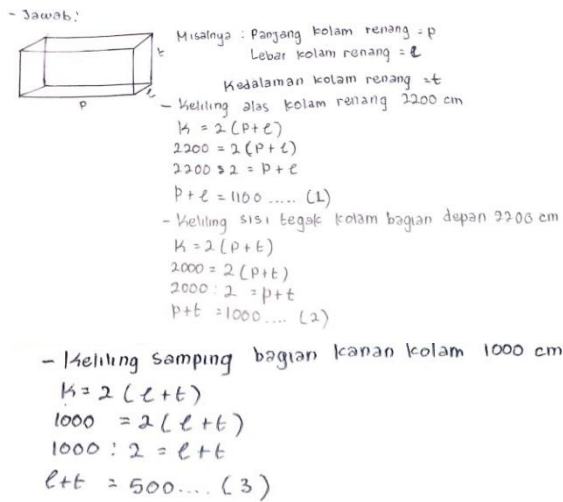 - Jawab:
Misalnya : Panjang kolam renang = p
Lebar kolam renang = l
Kedalaman kolam renang = t
t
l
p
- Keliling alas kolam renang 2200 cm
K = 2 (p + l)
2200 = 2 (p + l)
2200 : 2 = p + l
p + l = 1100 ..... (1)
- Keliling sisi tegak kolam bagian depan 2200 cm
K = 2 (p + t)
2000 = 2 (p + t)
2000 : 2 = p + t
p + t = 1000 .... (2)
- Keliling samping bagian kanan kolam 1000 cm
K = 2 (l + t)
1000 = 2 (l + t)
1000 : 2 = l + t
l + t = 500 .... (3)